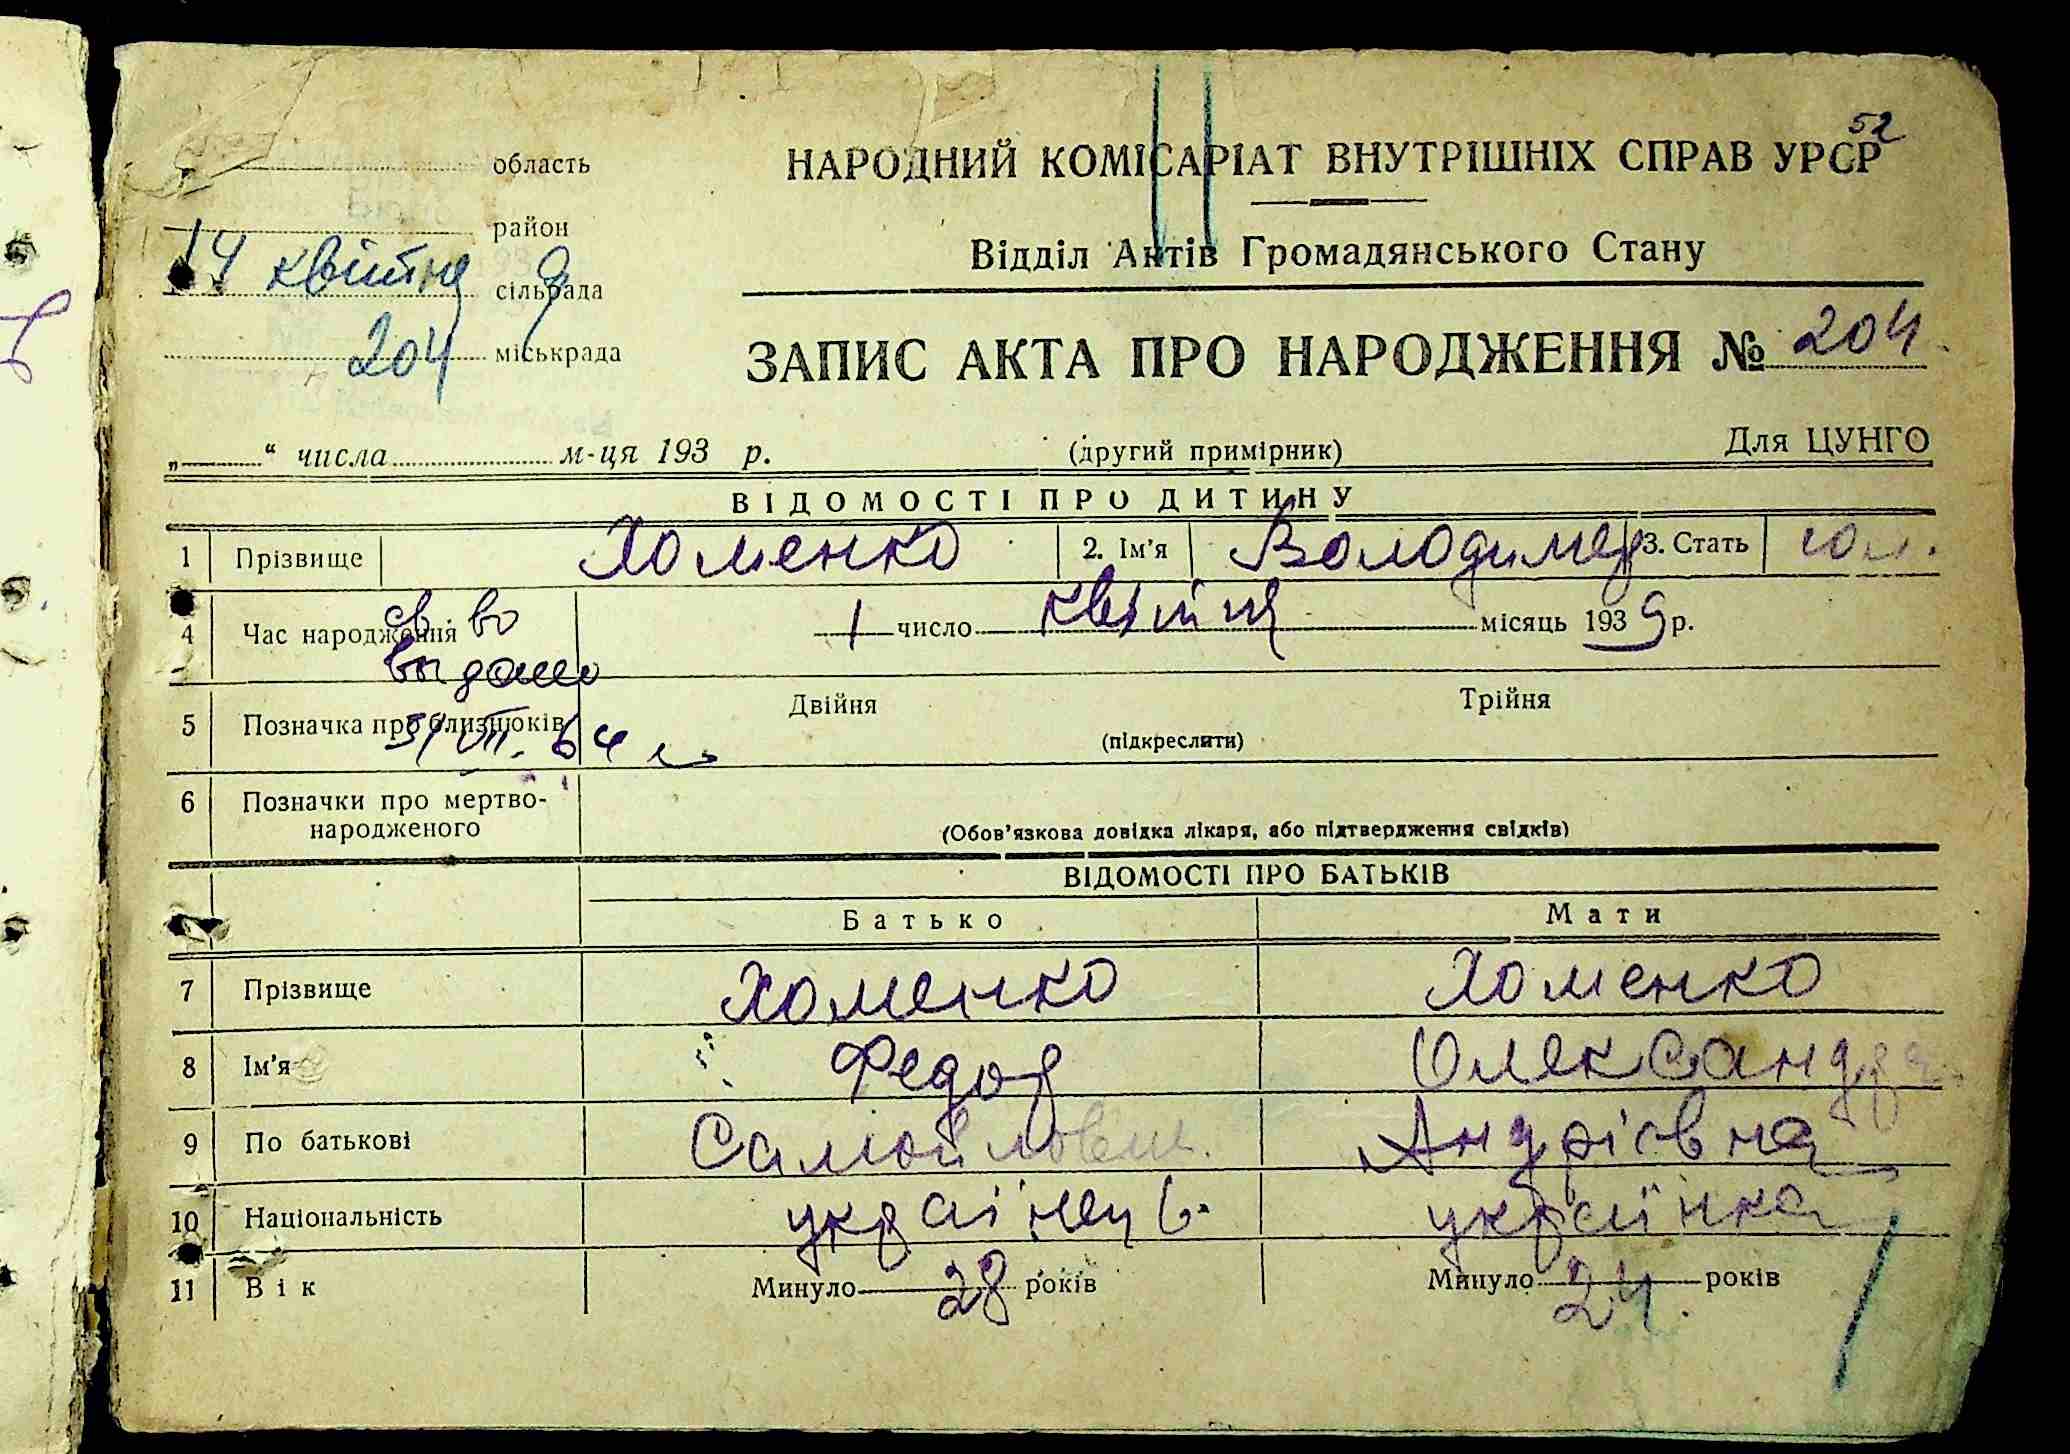 52
область
НАРОДНИЙ КОМІСАРІАТ ВНУТРІШНІХ СПРАВ УРСР
район
Відділ Актів Громадянського Стану
14 квітня 9
сільрада
204 міськрада
ЗАПИС АКТА ПРО НАРОДЖЕННЯ № 204
„ “ числа м-ця 193 р. (другий примірник) Для ЦУНГО
ВІДОМОСТІ ПРО ДИТИНУ
1 Прізвище Хоменко 2. Ім'я Володимер 3. Стать чол.
4 Час народження 1 число квітня місяць 1939 р.
св-во
выдано
5 Позначка про близнюків Двійня Трійня
31 VII. 64 г.
(підкреслити)
6 Позначки про мертво-
народженого
(Обов'язкова довідка лікаря, або підтвердження свідків)
ВІДОМОСТІ ПРО БАТЬКІВ
Батько Мати
7 Прізвище Хоменко Хоменко
8 Ім'я Федор Олександра
9 По батькові Самойлович Андрієвна
10 Національність українець українка
11 Вік Минуло 28 років Минуло 24 років